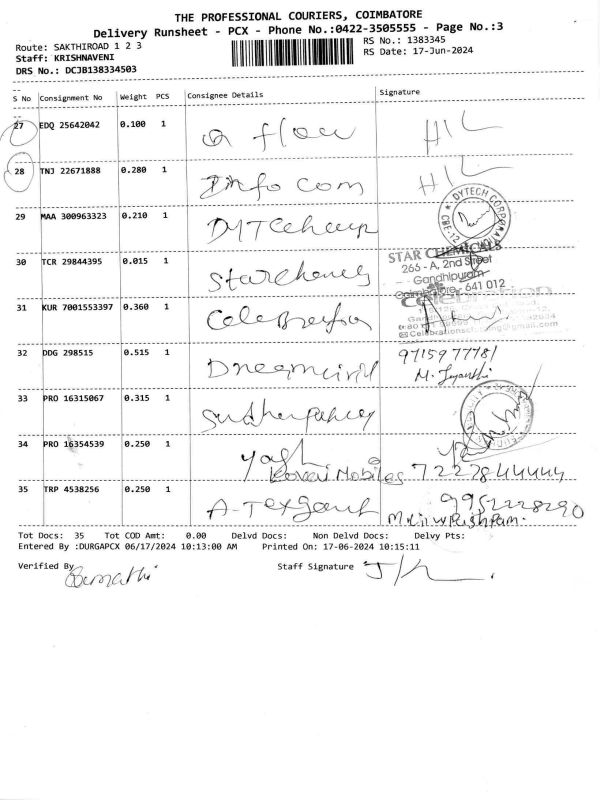 THE PROFESSIONAL COURIERS, COIMBATORE
Delivery Runsheet - PCX - Phone No.:0422-3505555 - Page No.:3
Route: SAKTHIROAD 1 2 3
RS No.: 1383345
Staff: KRISHNAVENI
RS Date: 17-Jun-2024
DRS No.: DCJB138334503
S No Consignment No Weight PCS Consignee Details Signature
27 EDQ 25642042 0.100 1 a flow HIL
28 TNJ 22671888 0.280 1 Info com HIL
DYTECH CORPORA
CBE-12
29 MAA 300963323 0.210 1
STAR CHEMICALS
266 - A, 2nd Street
Gandhipuram
Coimbatore - 641 012
30 TCR 29844395 0.015 1
31 KUR 7001553397 0.360 1 Celebration
32 DDG 298515 0.515 1 9715977781
M. Jayanthi
33 PRO 16315067 0.315 1
34 PRO 16354539 0.250 1 Yash
Kovai Mobiles 7222844444
35 TRP 4538256 0.250 1 9952228290
Tot Docs: 35 Tot COD Amt: 0.00 Delvd Docs: Non Delvd Docs: Delvy Pts:
Entered By :DURGAPCX 06/17/2024 10:13:00 AM Printed On: 17-06-2024 10:15:11
Verified By
Staff Signature